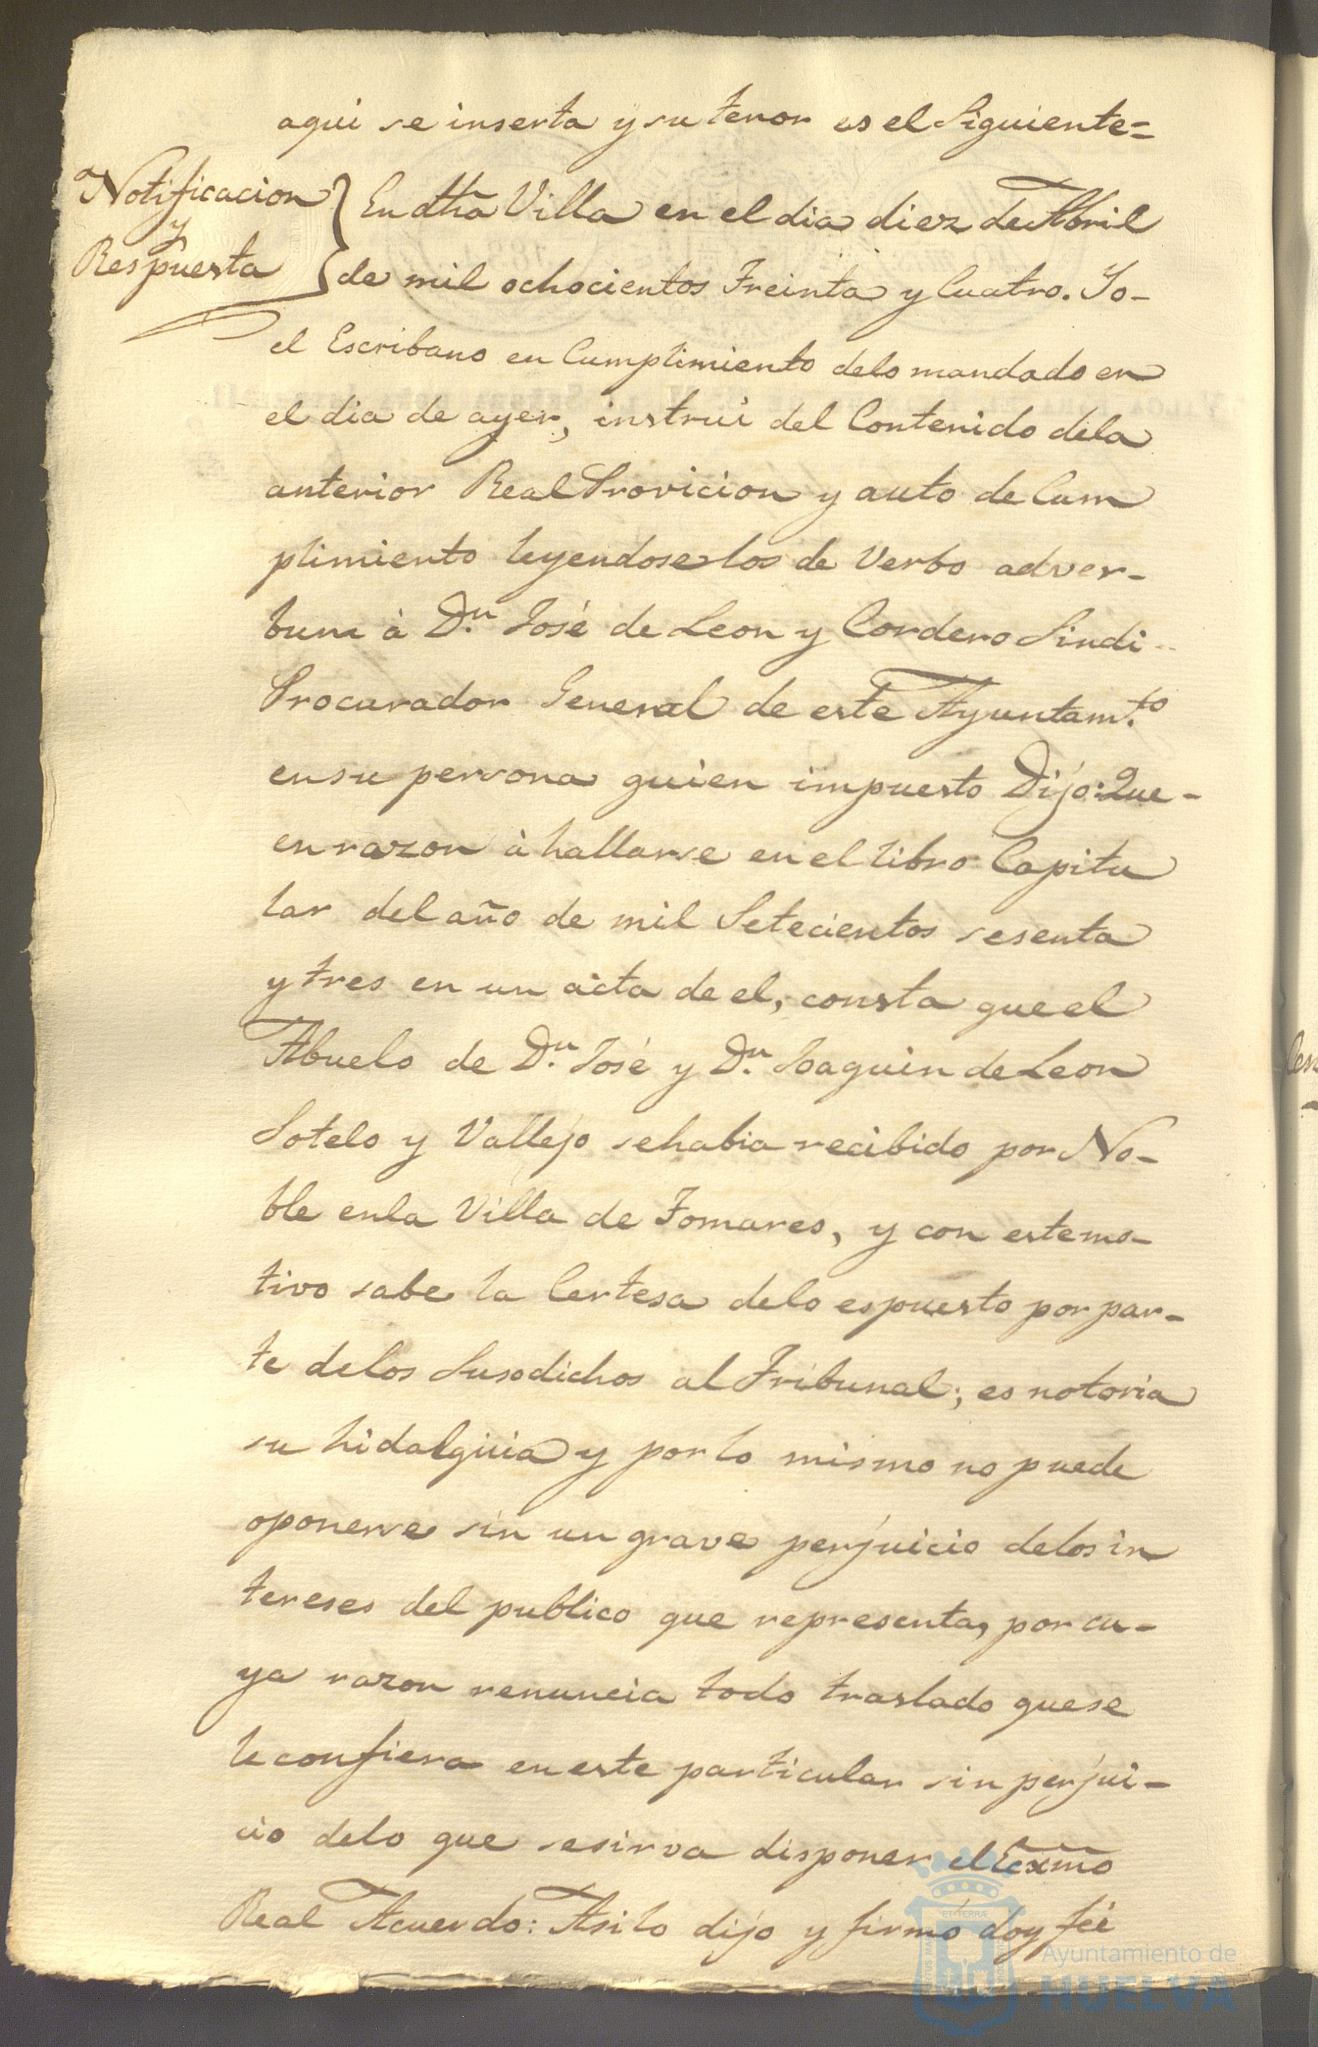 aqui se inserta y su tenor es el Siguiente=
Notificacion
y
Respuesta
En dha Villa en el dia diez de Abril
de mil ochocientos Treinta y Cuatro. Yo-
el Escribano en Cumplimiento delo mandado en
el dia de ayer, instrui del Contenido dela
anterior Real Provicion y auto de Cum
plimiento leyendoselos de Verbo adver-
bum à Dn. José de Leon y Cordero Sindi-
Procurador General de este Ayuntam.to
en su persona quien impuesto Dijo: Que-
en razon à hallarse en el libro Capitu
lar del año de mil Setecientos sesenta
y tres en un acta de el, consta que el
Abuelo de Dn. José y Dn. Joaquin de Leon
Sotelo y Vallejo se habia recibido por No-
ble enla Villa de Tomares, y con este mo-
tivo sabe la Certesa delo espuesto por par-
te delos Susodichos al Tribunal; es notoria
su hidalguia y por lo mismo no puede
oponerse sin un grave perjuicio delos in
tereses del publico que representa, por cu-
ya razon renuncia todo traslado que se
le confiera en este particular sin perjui-
cio delo que se sirva disponer el Exmo
Real Acuerdo: Asi lo dijo y firmó doy feé
Ayuntamiento de
HUELVA